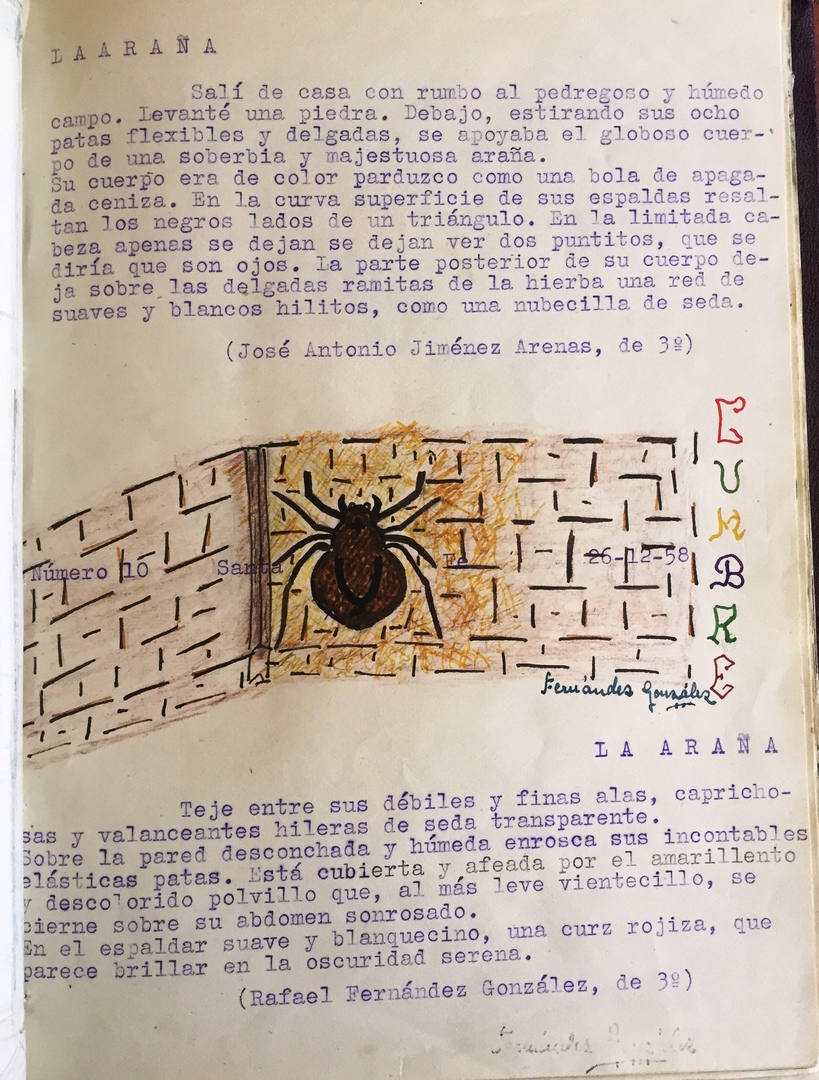 L A A R A Ñ A
Salí de casa con rumbo al pedregoso y húmedo
campo. Levanté una piedra. Debajo, estirando sus ocho
patas flexibles y delgadas, se apoyaba el globoso cuer-
po de una soberbia y majestuosa araña.
Su cuerpo era de color parduzco como una bola de apaga-
da ceniza. En la curva superficie de sus espaldas resal-
tan los negros lados de un triángulo. En la limitada ca-
beza apenas se dejan se dejan ver dos puntitos, que se
diría que son ojos. La parte posterior de su cuerpo de-
ja sobre las delgadas ramitas de la hierba una red de
suaves y blancos hilitos, como una nubecilla de seda.
(José Antonio Jiménez Arenas, de 3º)
Número 10 Santa Fe 26-12-58
CUMBRE
Fernándes González
L A A R A Ñ A
Teje entre sus débiles y finas alas, capricho-
sas y valanceantes hileras de seda transparente.
Sobre la pared desconchada y húmeda enrosca sus incontables
elásticas patas. Está cubierta y afeada por el amarillento
y descolorido polvillo que, al más leve vientecillo, se
cierne sobre su abdomen sonrosado.
En el espaldar suave y blanquecino, una curz rojiza, que
parece brillar en la oscuridad serena.
(Rafael Fernández González, de 3º)